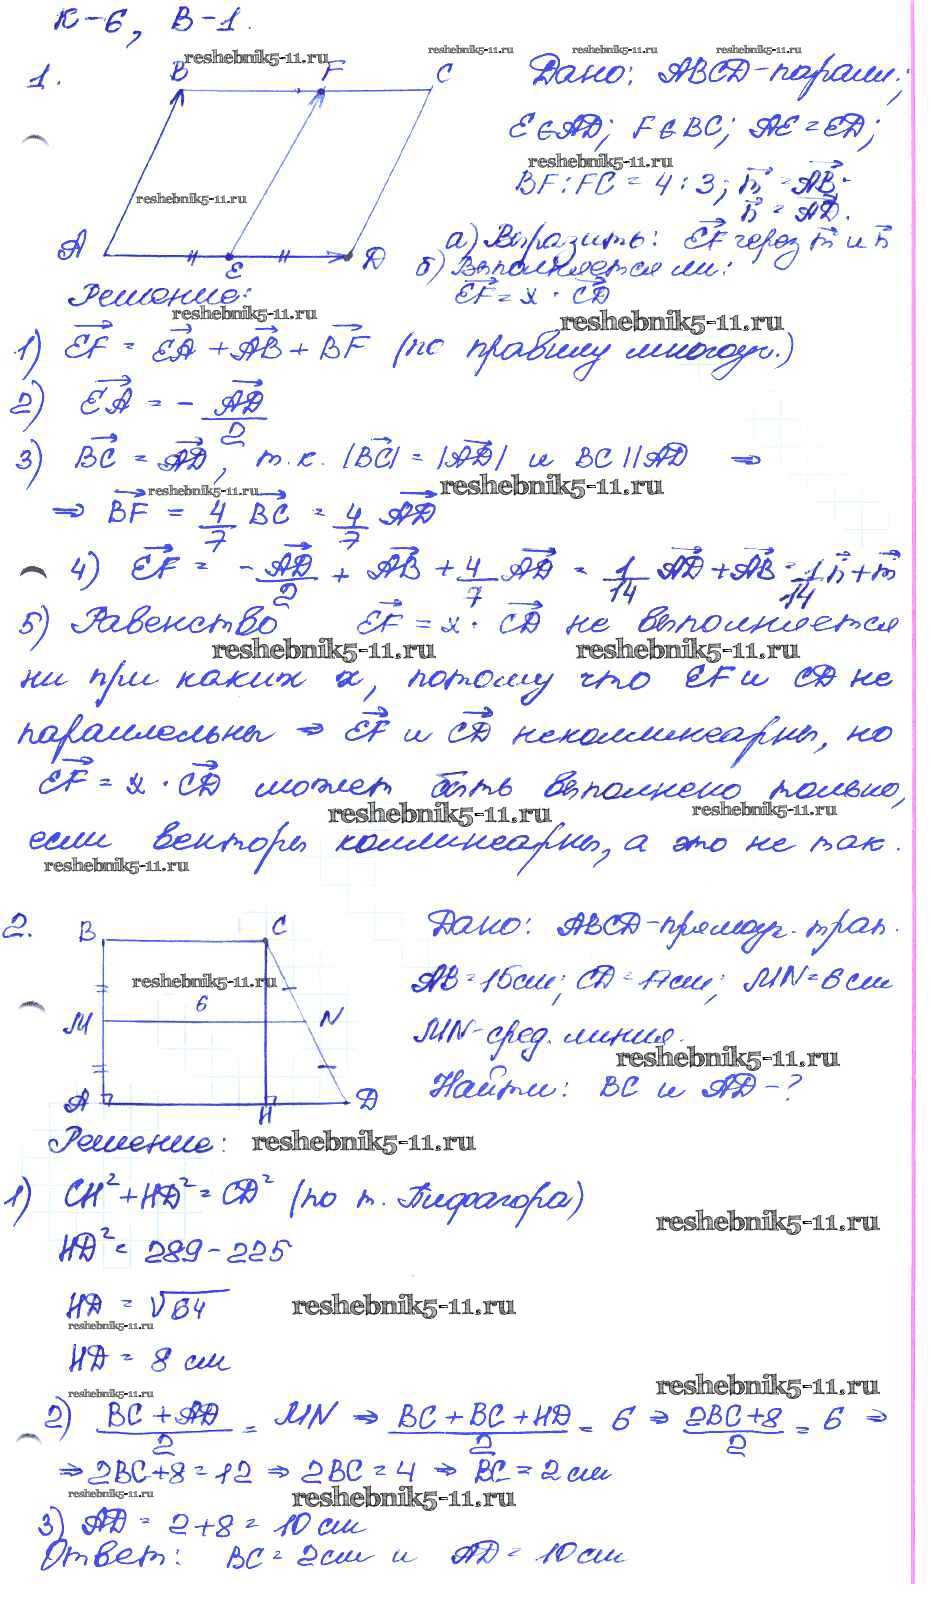 К-6, В-1.
reshebnik5-11.ru reshebnik5-11.ru reshebnik5-11.ru reshebnik5-11.ru
1. B F C Дано: ABCD-паралл.;
E∈AD; F∈BC; AE=ED;
reshebnik5-11.ru
BF:FC = 4:3; m = AB;
reshebnik5-11.ru
n = AD.
A E D а) Выразить: EF через m и n
б) Выполняется ли:
Решение: EF = x · CD
reshebnik5-11.ru reshebnik5-11.ru
1) EF = EA + AB + BF (по правилу многоуг.)
2) EA = - AD/2
3) BC = AD, т.к. |BC| = |AD| и BC || AD ⇒
reshebnik5-11.ru reshebnik5-11.ru
⇒ BF = 4/7 BC = 4/7 AD
4) EF = - AD/2 + AB + 4/7 AD = 1/14 AD + AB = 1/14 n + m
5) Равенство EF = x · CD не выполняется
reshebnik5-11.ru reshebnik5-11.ru
ни при каких x, потому что EF и CD не
параллельны ⇒ EF и CD неколлинеарны, но
EF = x · CD может быть выполнено только,
reshebnik5-11.ru reshebnik5-11.ru
если векторы коллинеарны, а это не так.
reshebnik5-11.ru
2. B C Дано: ABCD-прямоуг. трап.
reshebnik5-11.ru
AB=15см; CD=17см; MN=6см
6
M N
MN-сред. линия.
reshebnik5-11.ru
A H D Найти: BC и AD-?
Решение: reshebnik5-11.ru
1) CH² + HD² = CD² (по т. Пифагора)
reshebnik5-11.ru
HD² = 289 - 225
HD = √64 reshebnik5-11.ru
reshebnik5-11.ru
HD = 8 см
reshebnik5-11.ru reshebnik5-11.ru
2) (BC + AD)/2 = MN ⇒ (BC + BC + HD)/2 = 6 ⇒ (2BC+8)/2 = 6 ⇒
⇒ 2BC+8=12 ⇒ 2BC=4 ⇒ BC=2см
reshebnik5-11.ru reshebnik5-11.ru
3) AD = 2+8 = 10см
Ответ: BC = 2см и AD = 10см